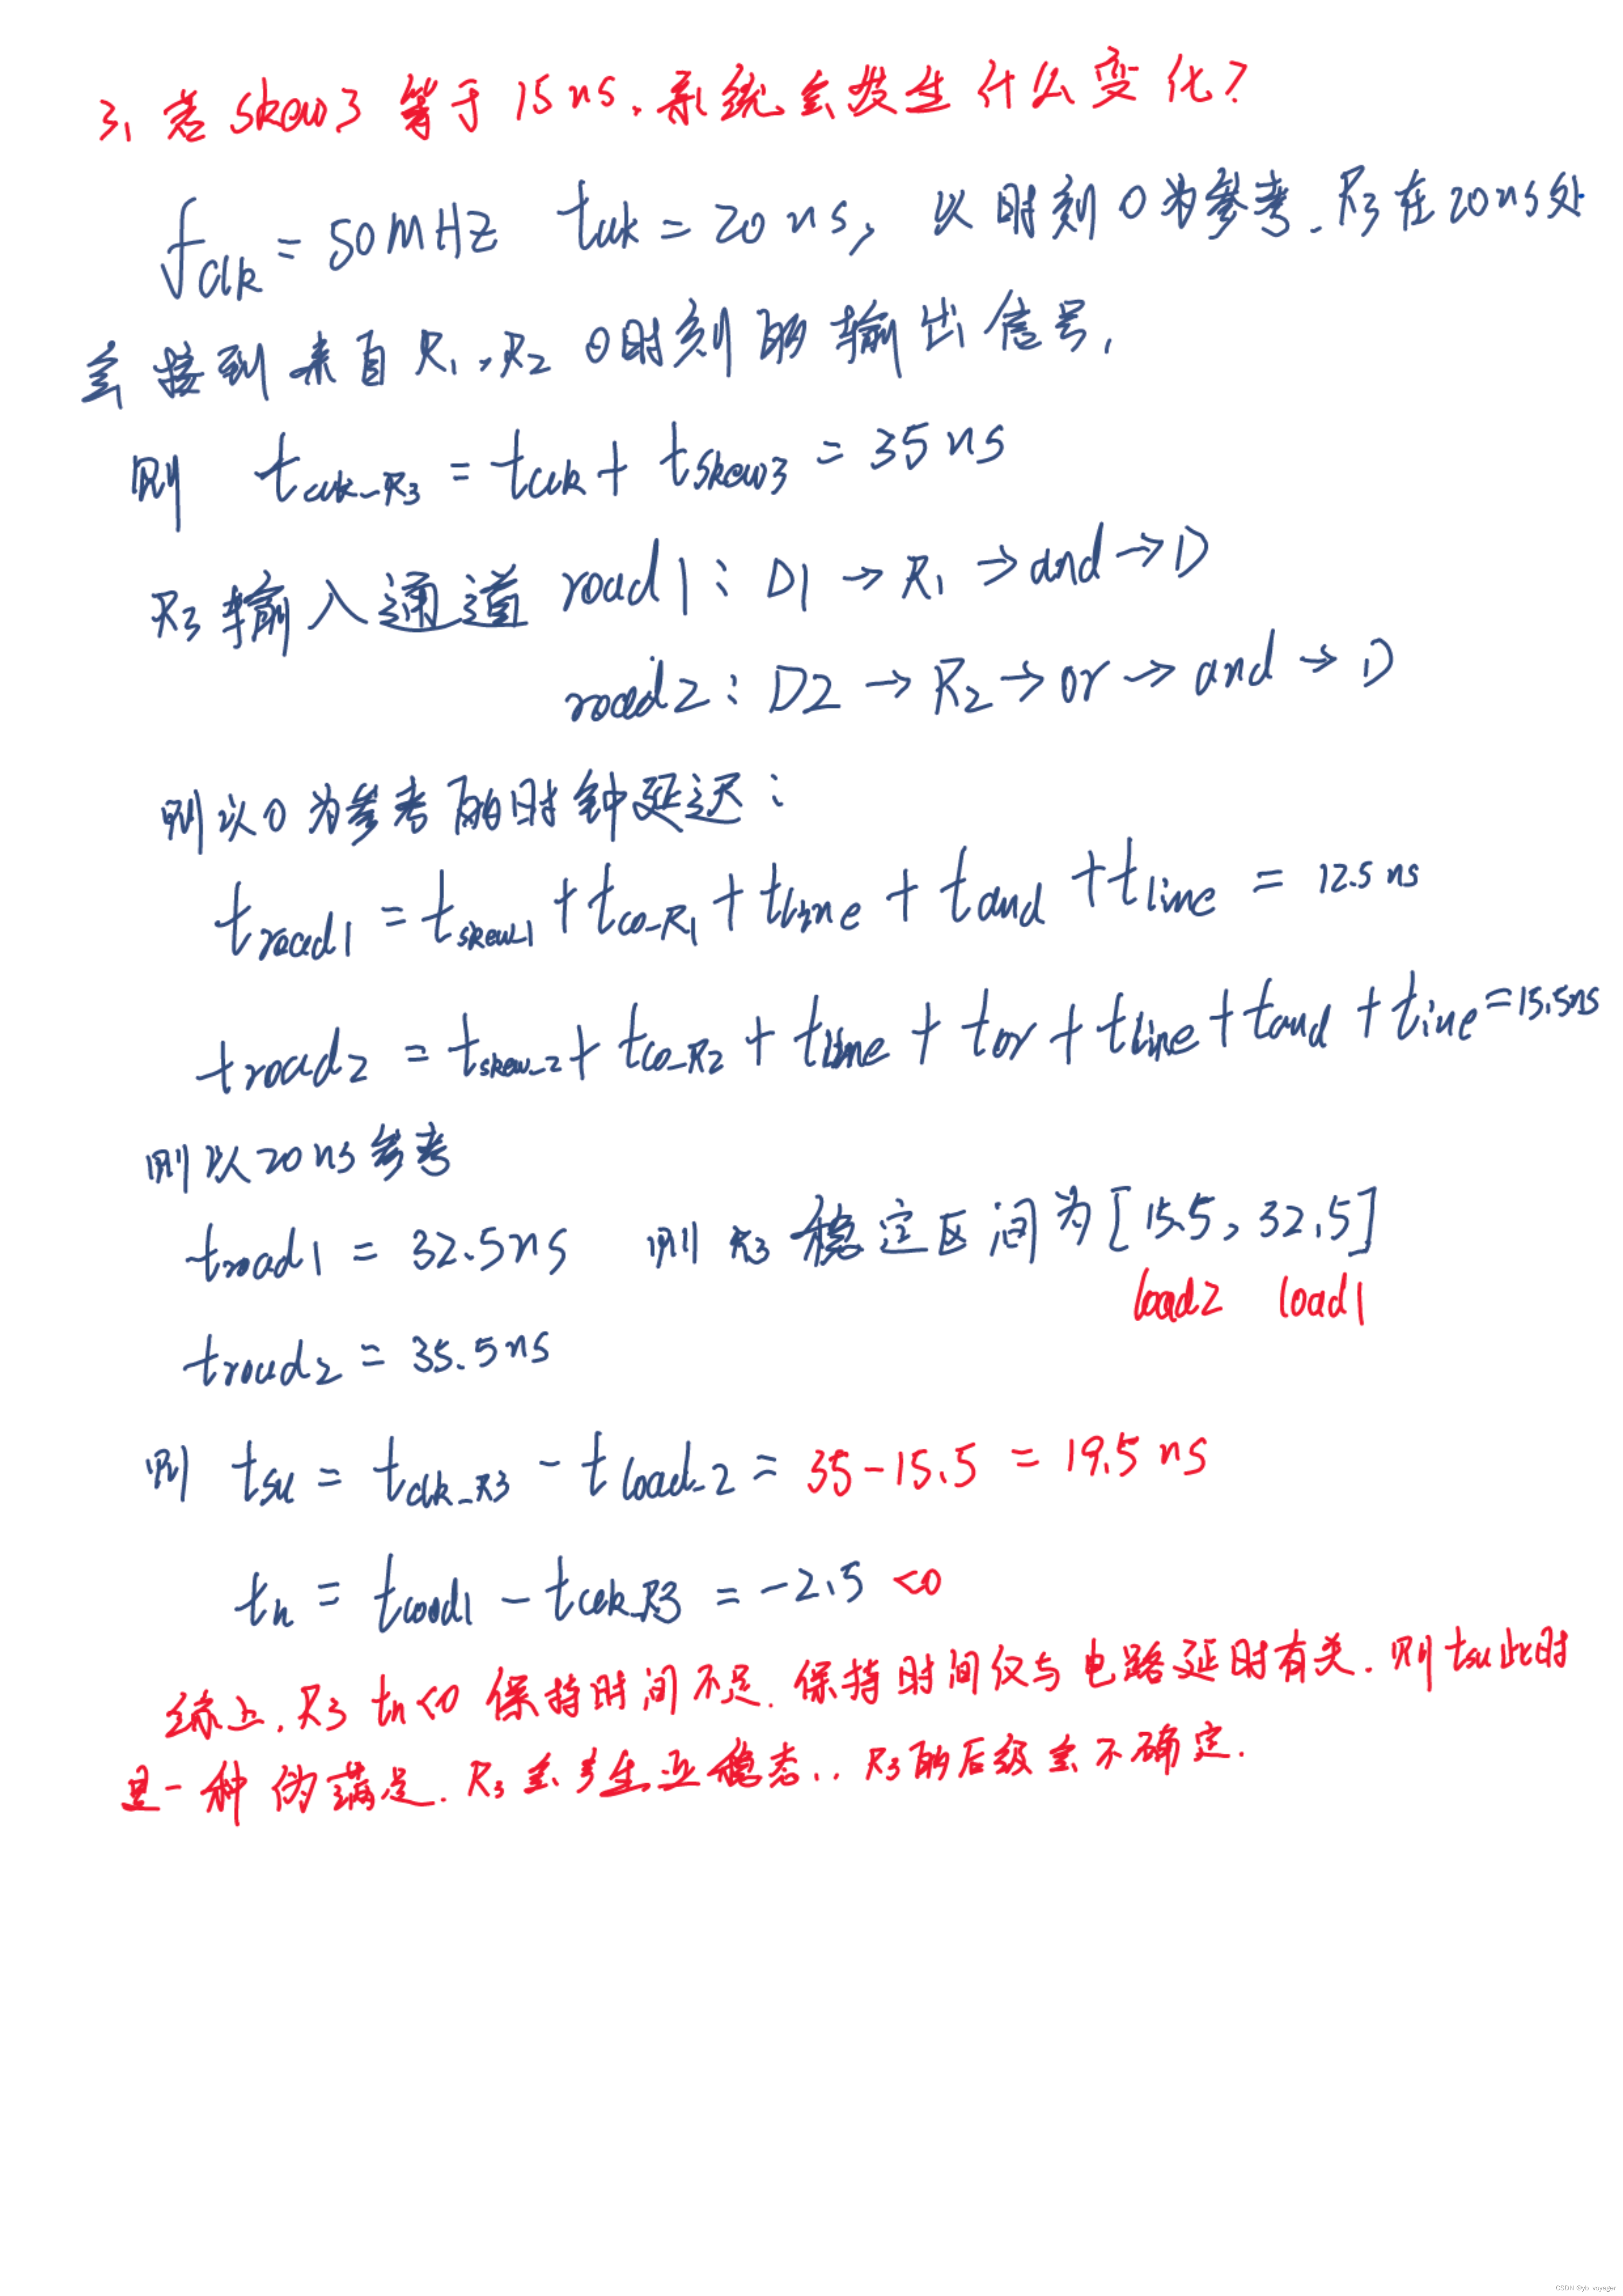 3、若 skew3 等于 15ns,系统会发生什么变化?
fclk = 50MHz tclk = 20ns, 以时刻0为参考.R3在20ns处
会接到来自R1,R2 0时刻的输出信号,
则 tclk_R3 = tclk + tskew3 = 35ns
R3输入通道 road1: D1 → R1 → and → D
road2: D2 → R2 → or → and → D
则以0为参考的时钟延迟:
troad1 = tskew_1 + tco_R1 + tline + tand + tline = 12.5ns
troad2 = tskew_2 + tco_R2 + tline + tor + tline + tand + tline = 15.5ns
则以20ns参考
troad1 = 32.5ns 则R3稳定区间为[15.5, 32.5]
load2 load1
troad2 = 35.5ns
则 tsu = tclk_R3 - tload_2 = 35-15.5 = 19.5ns
th = tload1 - tclk_R3 = -2.5 <0
综上,R3 th<0 保持时间不足.保持时间仅与电路延时有关.则tsu此时
是一种伪满足.R3会产生亚稳态..R3的后级会不确定.
CSDN @yb_voyager